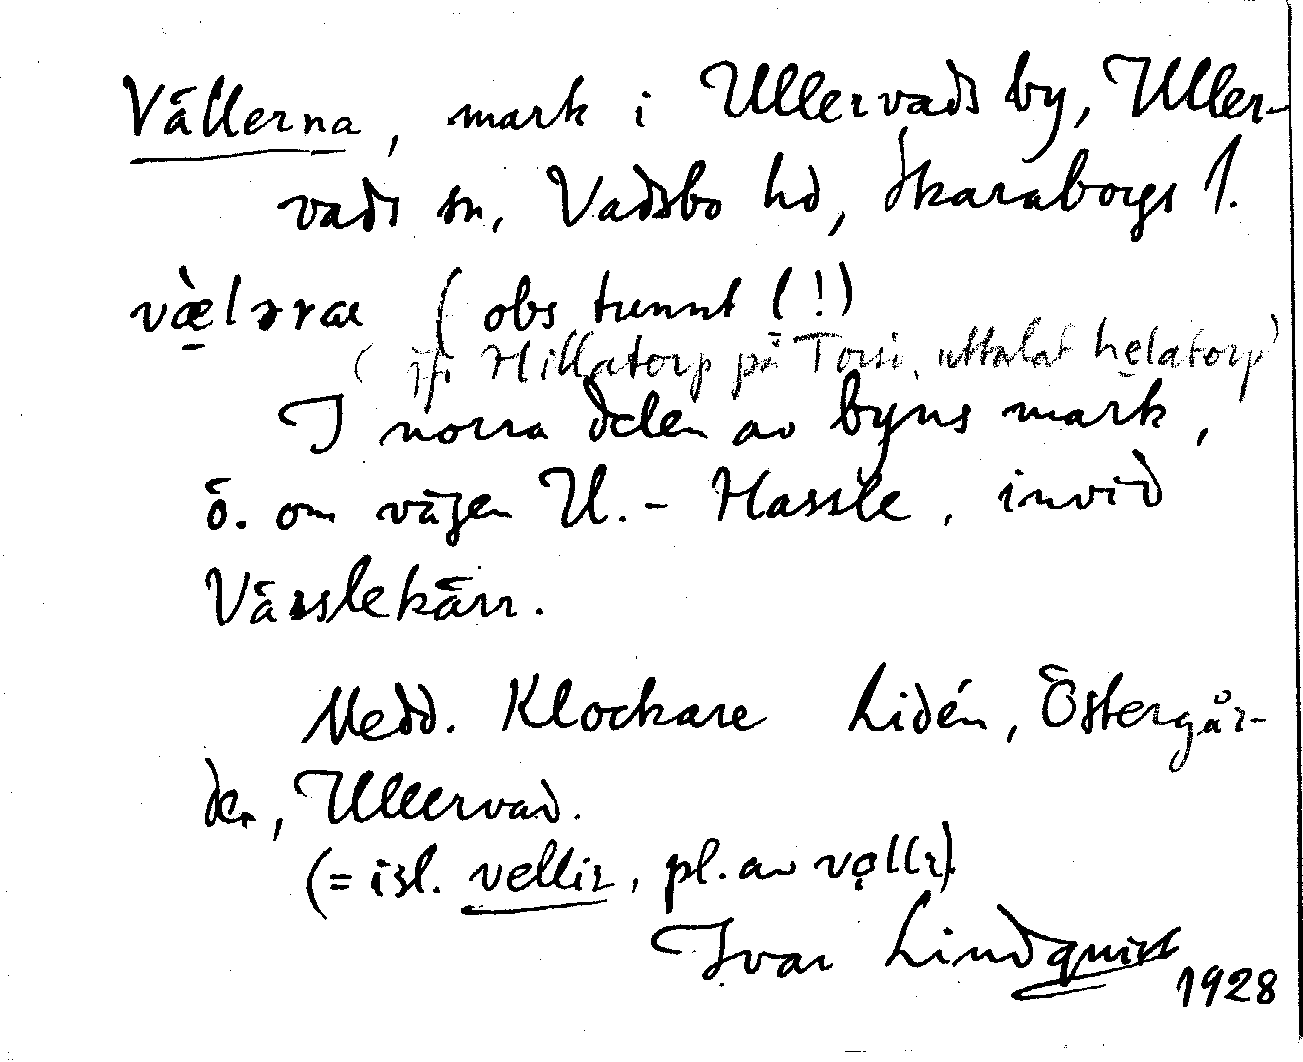 Vällerna, mark i Ullervads by, Uller-
vads sn, Vadsbo hd, Skaraborgs l.
væ̀ləræ (obs tunnt l!)
(jfr Hillatorp på Torsö, uttalat helatorp)
I norra delen av byns mark,
ö. om vägen U.-Hassle, invid
Vässlekärr.
Medd. Klockare Lidén, Östergår-
den, Ullervad.
(= isl. vellir, pl. av vǫllr).
Ivar Lindquist
1928